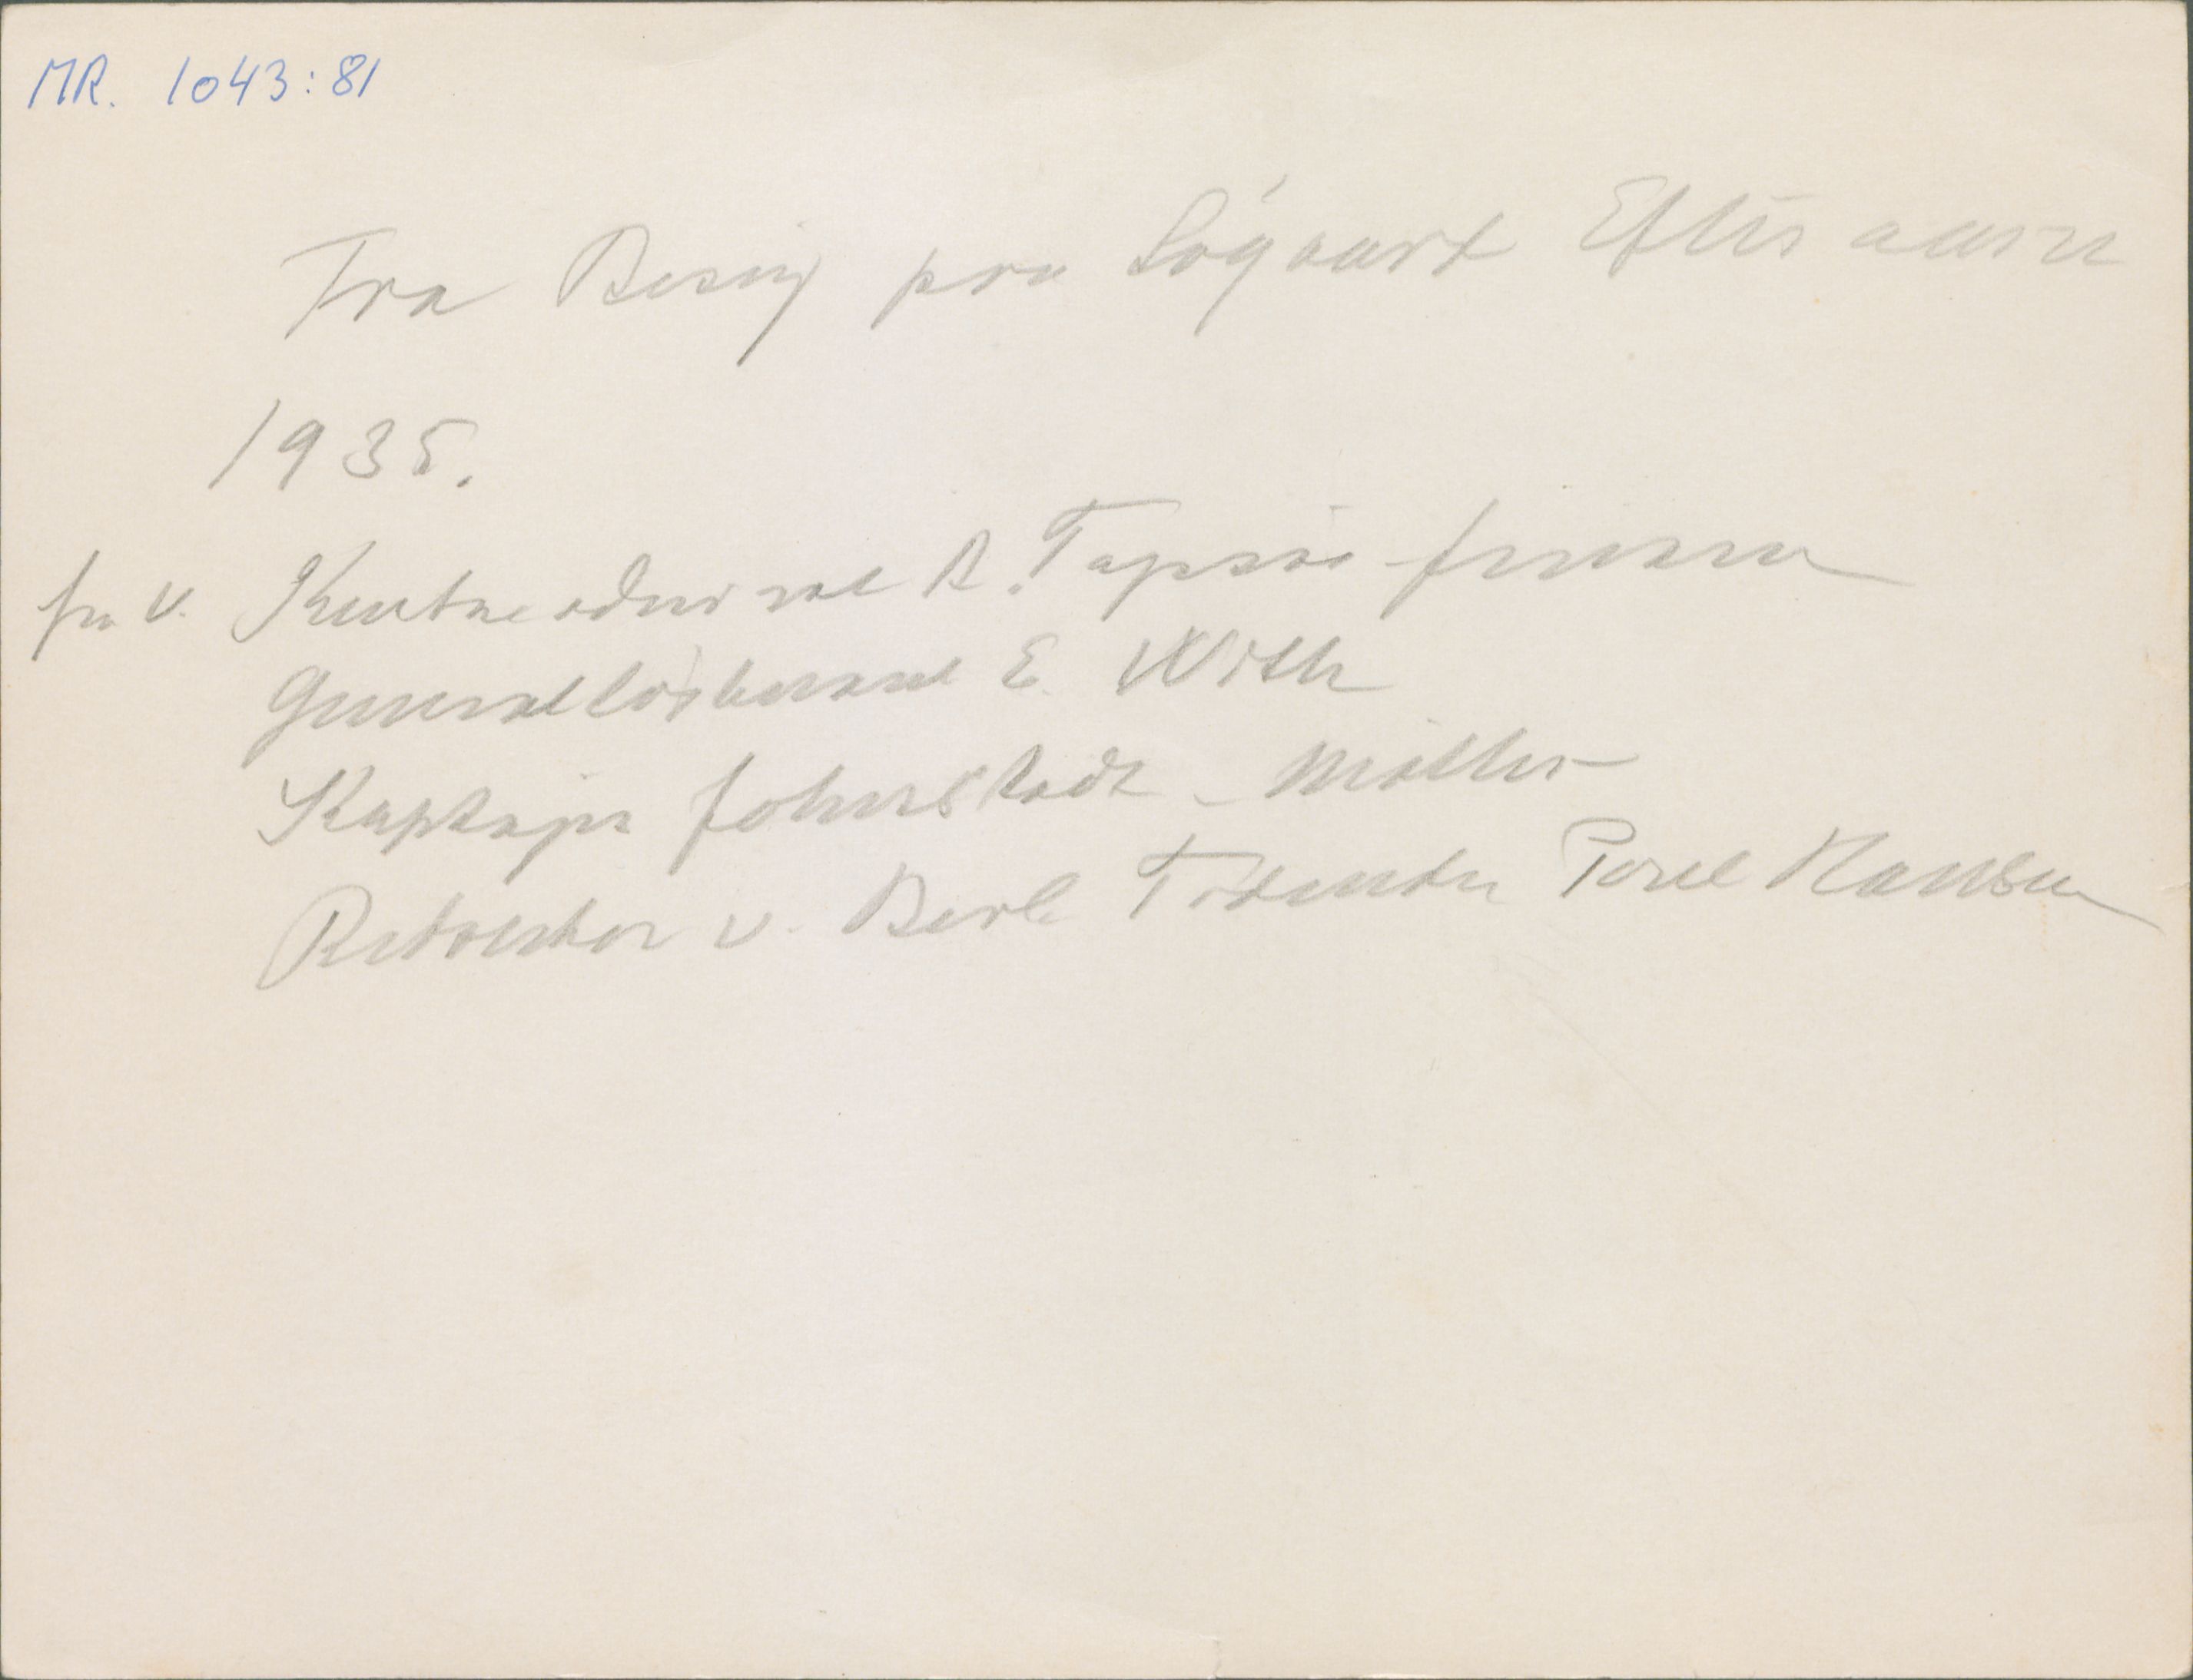 MR. 1043:81
Fra Besøg paa Søgaard Efteraaret
1935.
fra v. Kontreadmiral A. Topsøe-Jensen
Generalløjtnant E. With
Kaptajn Johnstad-Møller
Redaktør v. Berl. Tidende Povl Hansen